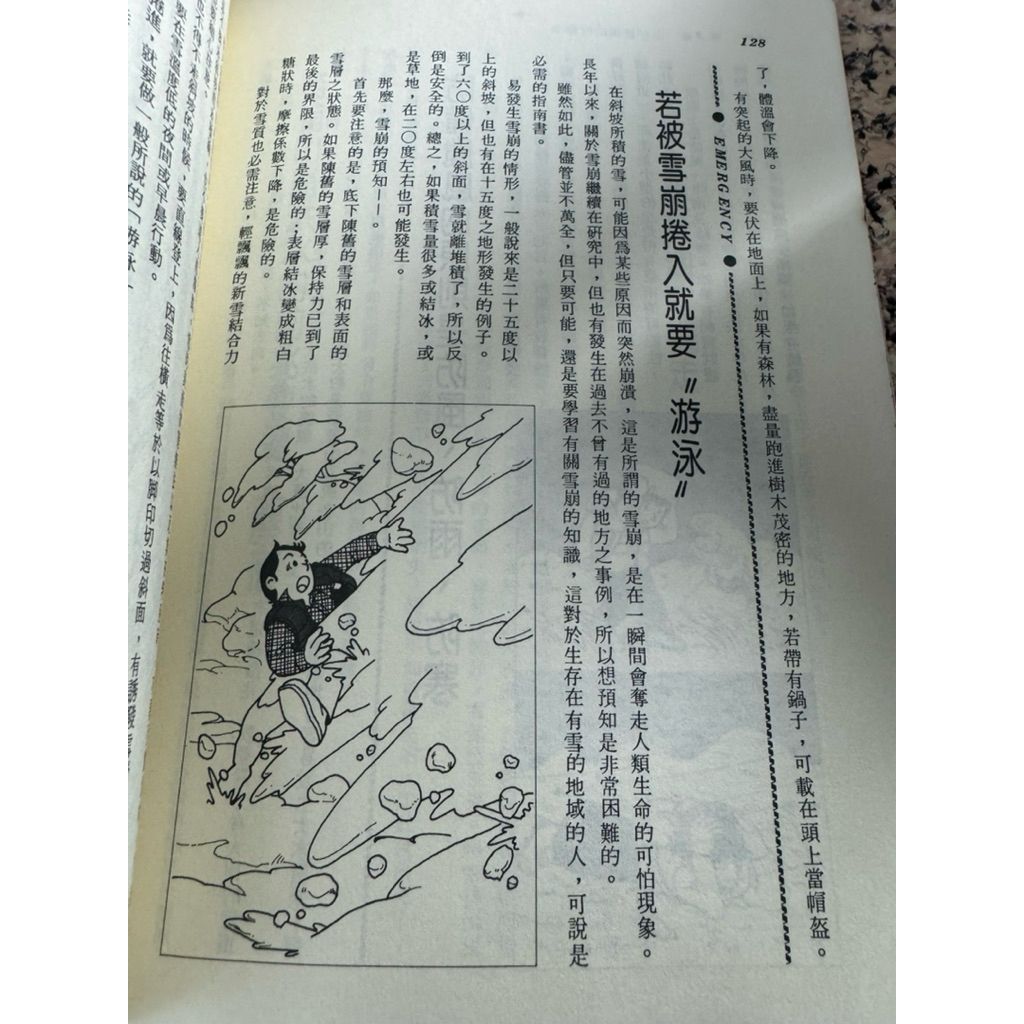 128
了，體溫會下降。
有突起的大風時，要伏在地面上，如果有森林，盡量跑進樹木茂密的地方，若帶有鍋子，可載在頭上當帽盔。
EMERGENCY
若被雪崩捲入就要〝游泳〞
在斜坡所積的雪，可能因為某些原因而突然崩潰，這是所謂的雪崩，是在一瞬間會奪走人類生命的可怕現象。
長年以來，關於雪崩繼續在研究中，但也有發生在過去不曾有過的地方之事例，所以想預知是非常困難的。
雖然如此，儘管並不萬全，但只要可能，還是要學習有關雪崩的知識，這對於生存在有雪的地域的人，可說是
必需的指南書。
易發生雪崩的情形，一般說來是二十五度以
上的斜坡，但也有在十五度之地形發生的例子。
到了六○度以上的斜面，雪就離堆積了，所以反
倒是安全的。總之，如果積雪量很多或結冰，或
是草地，在二○度左右也可能發生。
那麼，雪崩的預知——。
首先要注意的是，底下陳舊的雪層和表面的
雪層之狀態。如果陳舊的雪層厚，保持力已到了
最後的界限，所以是危險的；表層結冰變成粗白
糖狀時，摩擦係數下降，是危險的。
對於雪質也必需注意，輕飄飄的新雪結合力
的時候，要直線登上，因為往橫走等於以腳印切過斜面，有誘發
要在雪溫度低的夜間或早晨行動。
捲進，就要做一般所說的「游泳」